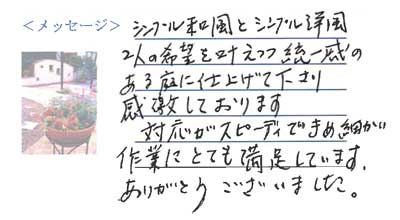 <メッセージ>
シンプル和風とシンプル洋風
2人の希望を叶えつつ統一感の
ある庭に仕上げて下さり
感激しております
対応がスピーディできめ細かい
作業にとても満足しています。
ありがとう ございました。